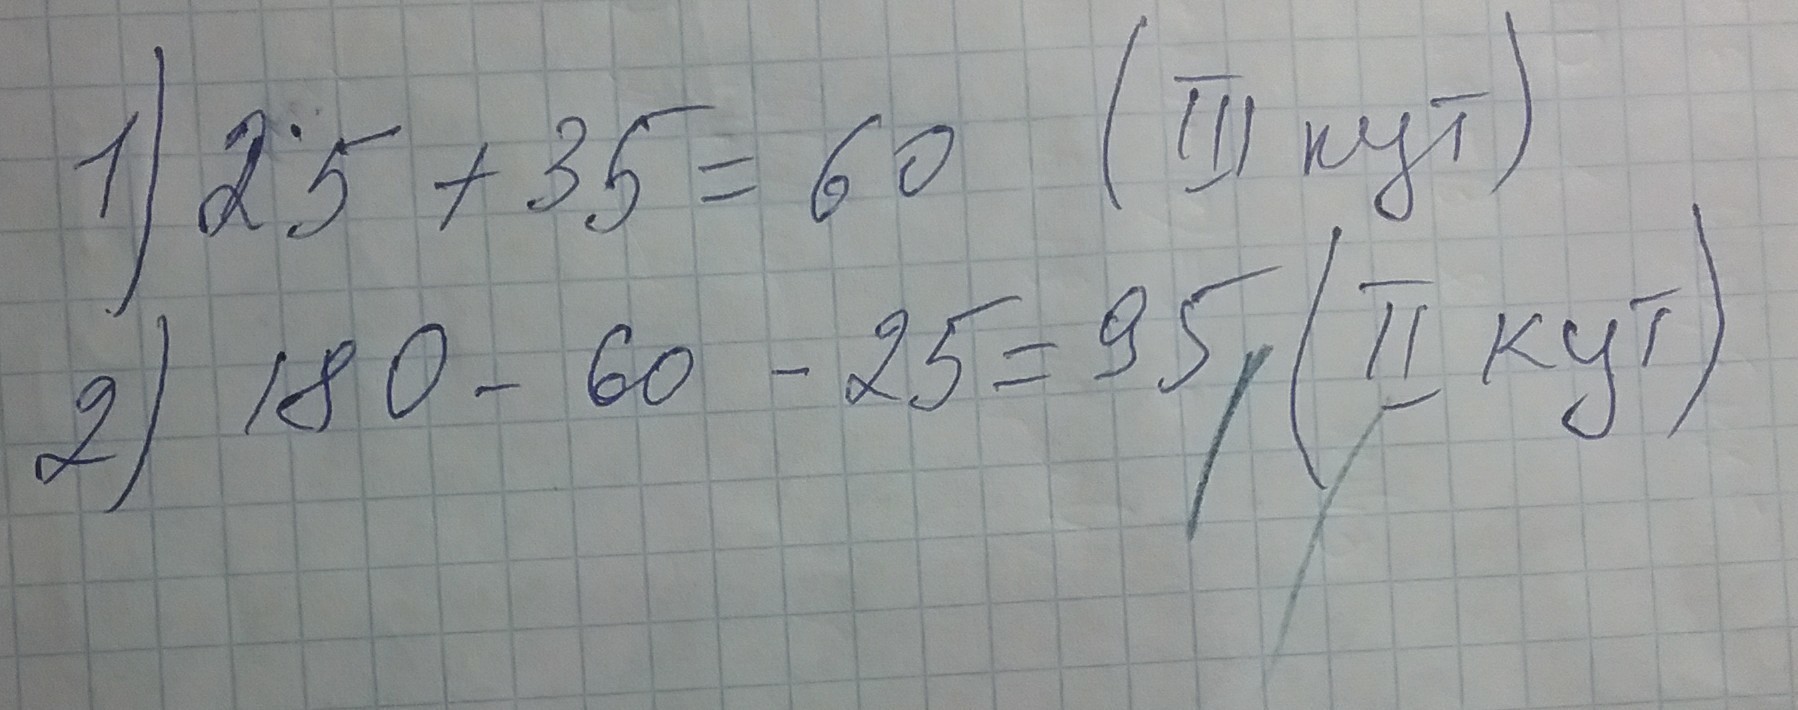 1) 25 + 35 = 60 (III кут)
2) 180 - 60 - 25 = 95, (II кут)